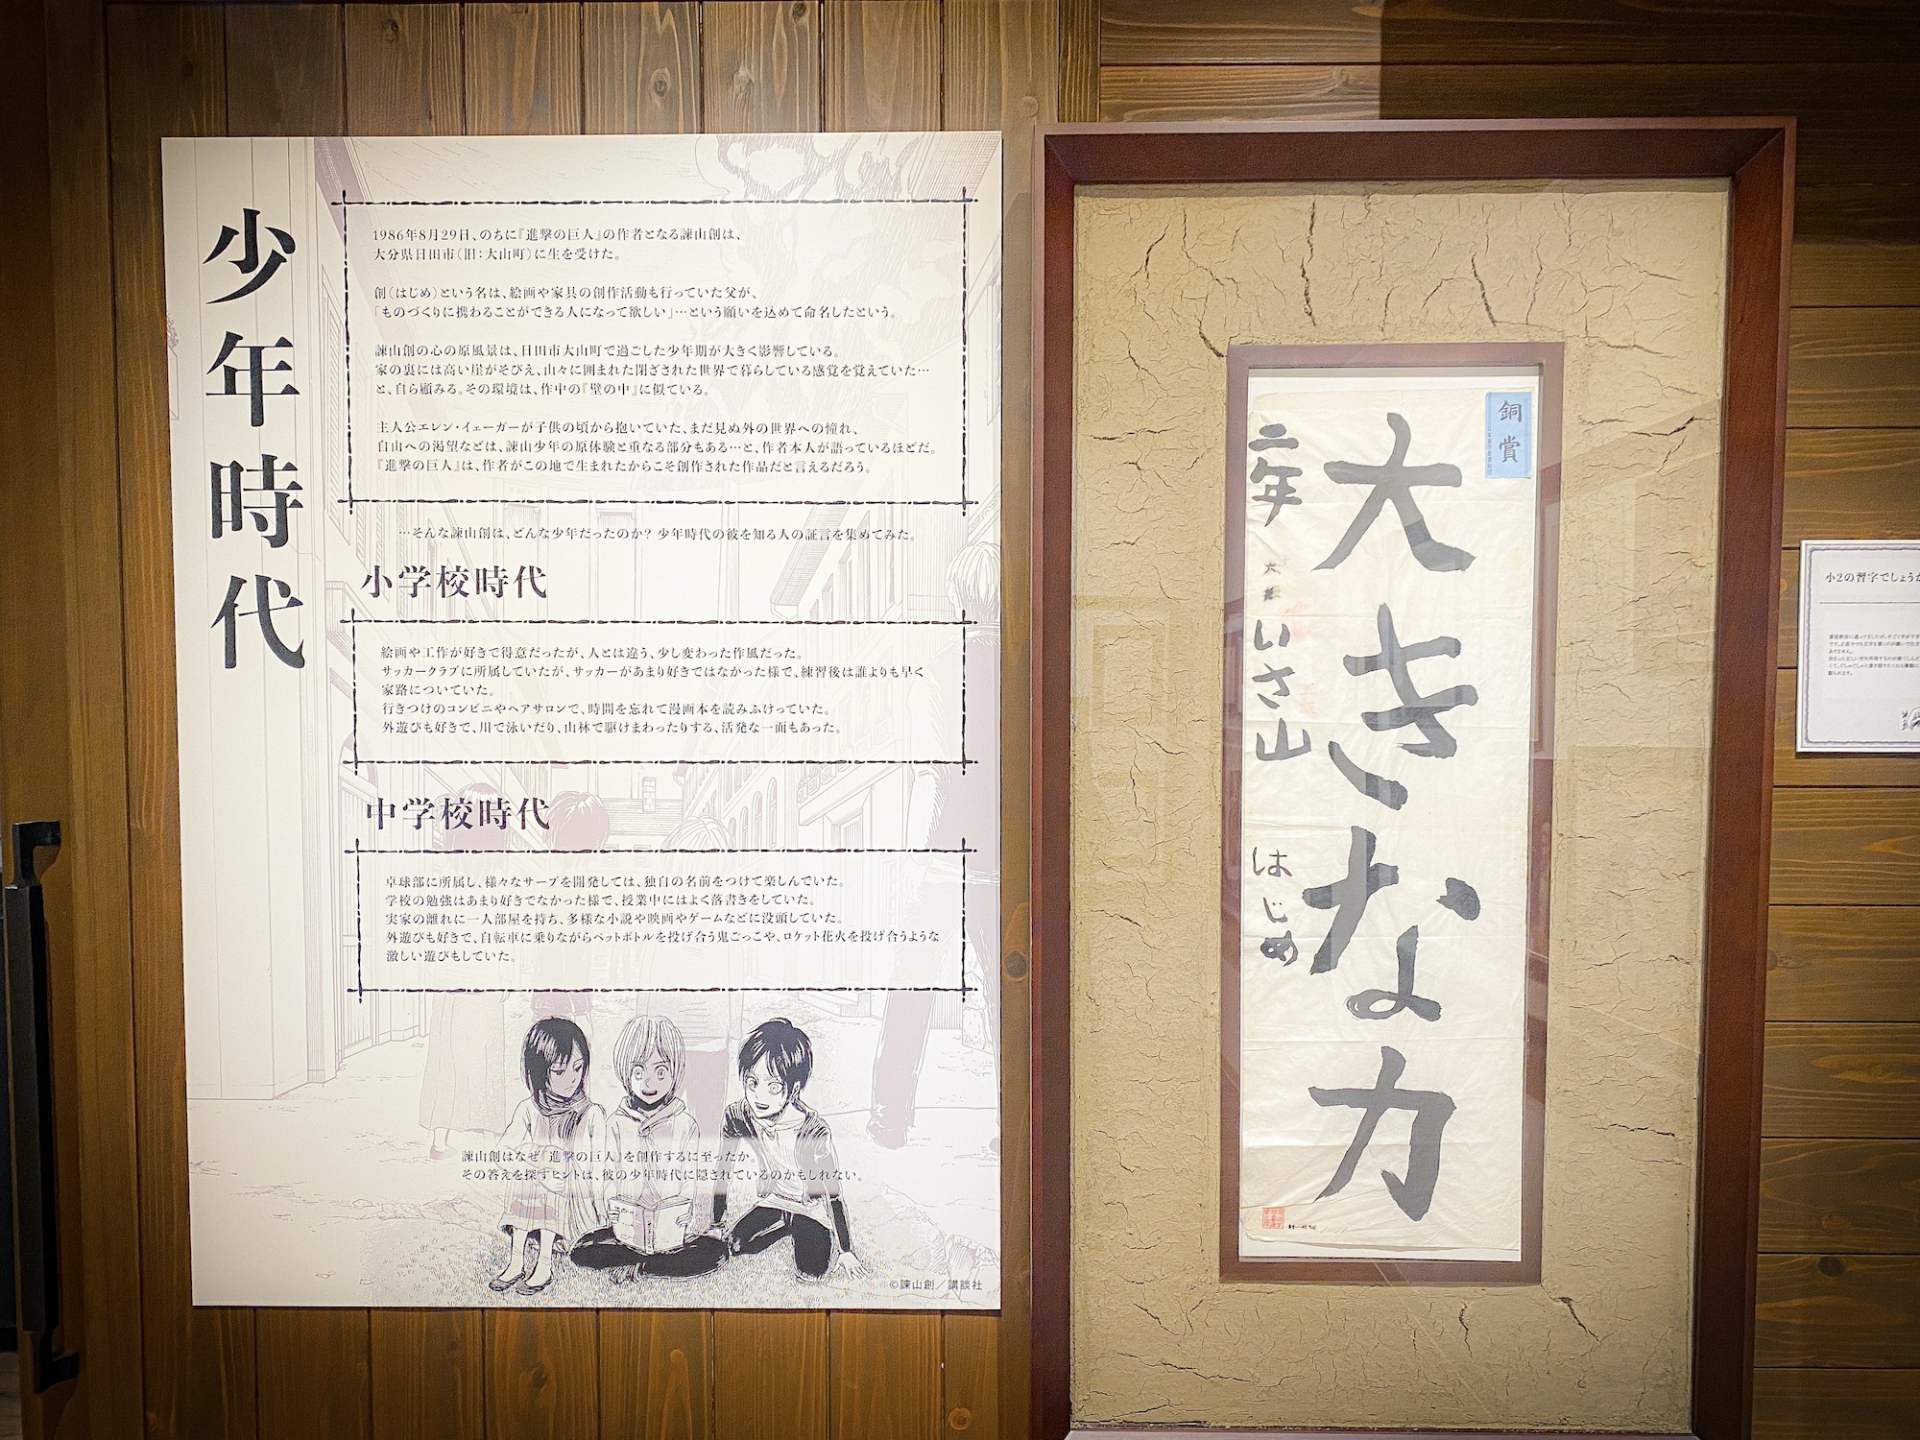 少年時代
1986年8月29日、のちに『進撃の巨人』の作者となる諫山創は、
大分県日田市(旧：大山町)に生を受けた。
創(はじめ)という名は、絵画や家具の創作活動も行っていた父が、
「ものづくりに携わることができる人になって欲しい」…という願いを込めて命名したという。
諫山創の心の原風景は、日田市大山町で過ごした少年期が大きく影響している。
家の裏には高い崖がそびえ、山々に囲まれた閉ざされた世界で暮らしている感覚を覚えていた…
と、自ら顧みる。その環境は、作中の『壁の中』に似ている。
主人公エレン・イェーガーが子供の頃から抱いていた、まだ見ぬ外の世界への憧れ、
自由への渇望などは、諫山少年の原体験と重なる部分もある…と、作者本人が語っているほどだ。
『進撃の巨人』は、作者がこの地で生まれたからこそ創作された作品だと言えるだろう。
…そんな諫山創は、どんな少年だったのか? 少年時代の彼を知る人の証言を集めてみた。
小学校時代
絵画や工作が好きで得意だったが、人とは違う、少し変わった作風だった。
サッカークラブに所属していたが、サッカーがあまり好きではなかった様で、練習後は誰よりも早く
家路についていた。
行きつけのコンビニやヘアサロンで、時間を忘れて漫画本を読みふけっていた。
外遊びも好きで、川で泳いだり、山林で駆けまわったりする、活発な一面もあった。
中学校時代
卓球部に所属し、様々なサーブを開発しては、独自の名前をつけて楽しんでいた。
学校の勉強はあまり好きでなかった様で、授業中にはよく落書きをしていた。
実家の離れに一人部屋を持ち、多様な小説や映画やゲームなどに没頭していた。
外遊びも好きで、自転車に乗りながらペットボトルを投げ合う鬼ごっこや、ロケット花火を投げ合うような
激しい遊びもしていた。
諫山創はなぜ『進撃の巨人』を創作するに至ったか。
その答えを探すヒントは、彼の少年時代に隠されているのかもしれない。
©諫山創／講談社
銅賞
大きな力
二年
いさ山
はじめ
小2の習字でしょうか